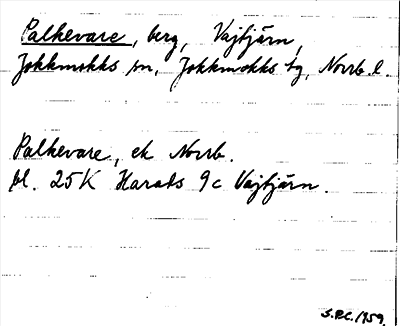 Palkevare, berg, Vajtjärn,
Jokkmokks sn, Jokkmokks tg, Norrb. l.
Palkevare, ek Norrb.
bl. 25K Harads 9c Vajtjärn.
S.P.C. 1959.